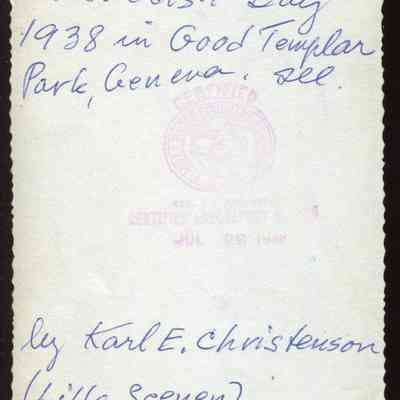 Day
1938 in Good Templar
Park, Geneva. Ill.
CERTIFIED
JUL
by Karl E. Christenson
(Lilla Scenen)